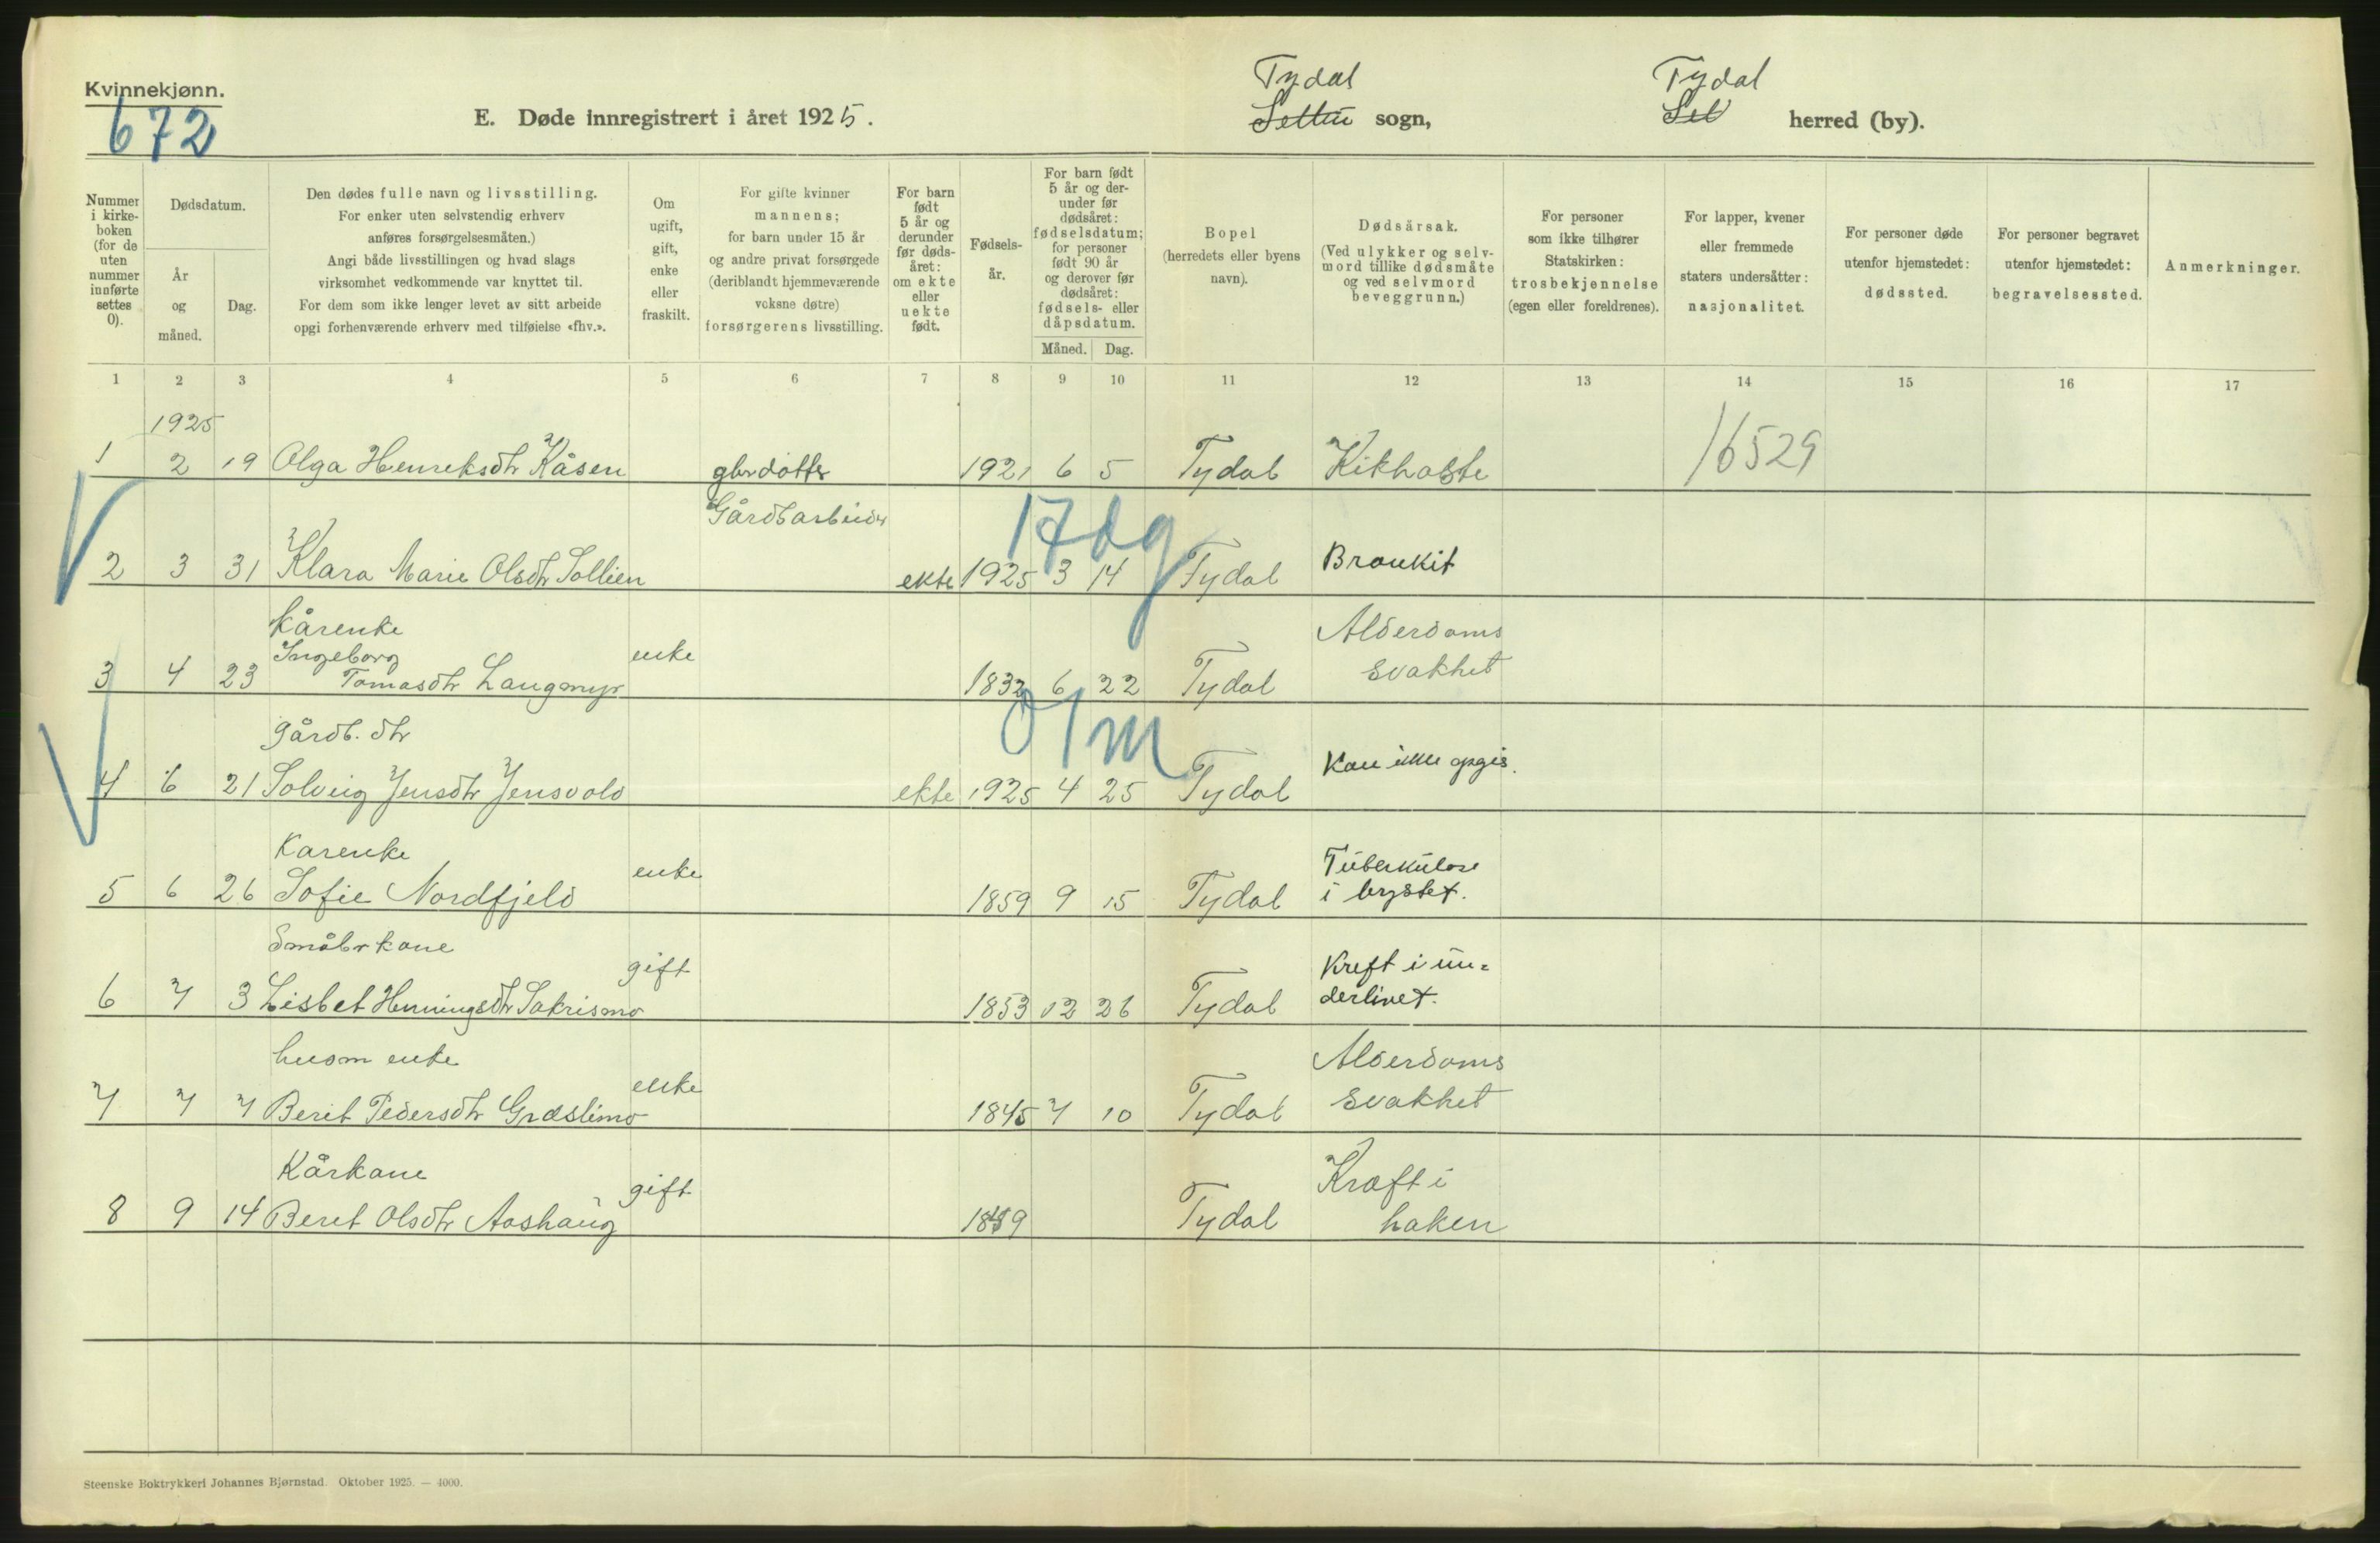 Kvinnekjønn.
672
E. Døde innregistrert i året 1925.
Tydal
sogn,
Tydal
Sel
herred (by).
Nummer i kirkeboken (for de uten nummer innførte settes 0).
Dødsdatum.
År og måned.
Dag.
Den dødes fulle navn og livsstilling.
For enker uten selvstendig erhverv
anføres forsørgelsesmåten.)
Angi både livsstillingen og hvad slags
virksomhet vedkommende var knyttet til.
For dem som ikke lenger levet av sitt arbeide
opgi forhenværende erhverv med tilføielse «fhv.».
Om ugift, gift, enke eller fraskilt.
For gifte kvinner
mannens;
for barn under 15 år
og andre privat forsørgede
(deriblandt hjemmeværende
voksne døtre)
forsørgerens livsstilling.
For barn født 5 år og derunder før dødsåret: om ekte eller uekte født.
Fødselsår.
For barn født 5 år og derunder før dødsåret: fødselsdatum; for personer født 90 år og derover før dødsåret: fødsels- eller dåpsdatum.
Måned.
Dag.
Bopel
(herredets eller byens
navn).
Dødsårsak.
(Ved ulykker og selvmord tillike dødsmåte
og ved selvmord
beveggrunn.)
For personer
som ikke tilhører
Statskirken:
trosbekjennelse
(egen eller foreldrenes).
For lapper, kvener
eller fremmede
staters undersåtter:
nasjonalitet.
For personer døde
utenfor hjemstedet:
dødssted.
For personer begravet
utenfor hjemstedet:
begravelsessted.
Anmerkninger.
1 2 3 4 5 6 7 8 9 10 11 12 13 14 15 16 17
1925
1 2 19 Olga Henreksdtr Kåsen gbrdotter 1921 6 5 Tydal Kikhoste 16529
Gårdbarbeider
17 dg
2 3 31 Klara Marie Olsdtr Sollien ekte 1925 3 14 Tydal Bronkit
Kårenke
Ingeborg enke Alderdoms
3 4 23 Tomasdtr Langmyr 1832 6 22 Tydal svakhet
gårdb. dtr
0/m
4 6 21 Solveig Jensdtr Jensvold ekte 1925 4 25 Tydal Kan ikke opgis.
Karenke
enke Tuberkulose
5 6 26 Sofie Nordfjeld 1859 9 15 Tydal i brystet.
Småbr kone
gift Kreft i un=
6 7 3 Lisbet Henningsdtr Sakrismo 1853 12 26 Tydal derlivet.
husm enke
enke Alderdoms
7 7 7 Berit Pedersdtr Græslimo 1845 7 10 Tydal svakhet
Kårkone
gift Kræft i
8 9 14 Beret Olsdtr Aashaug Tydal haken
Steenske Boktrykkeri Johannes Bjørnstad. Oktober 1925. — 4000.